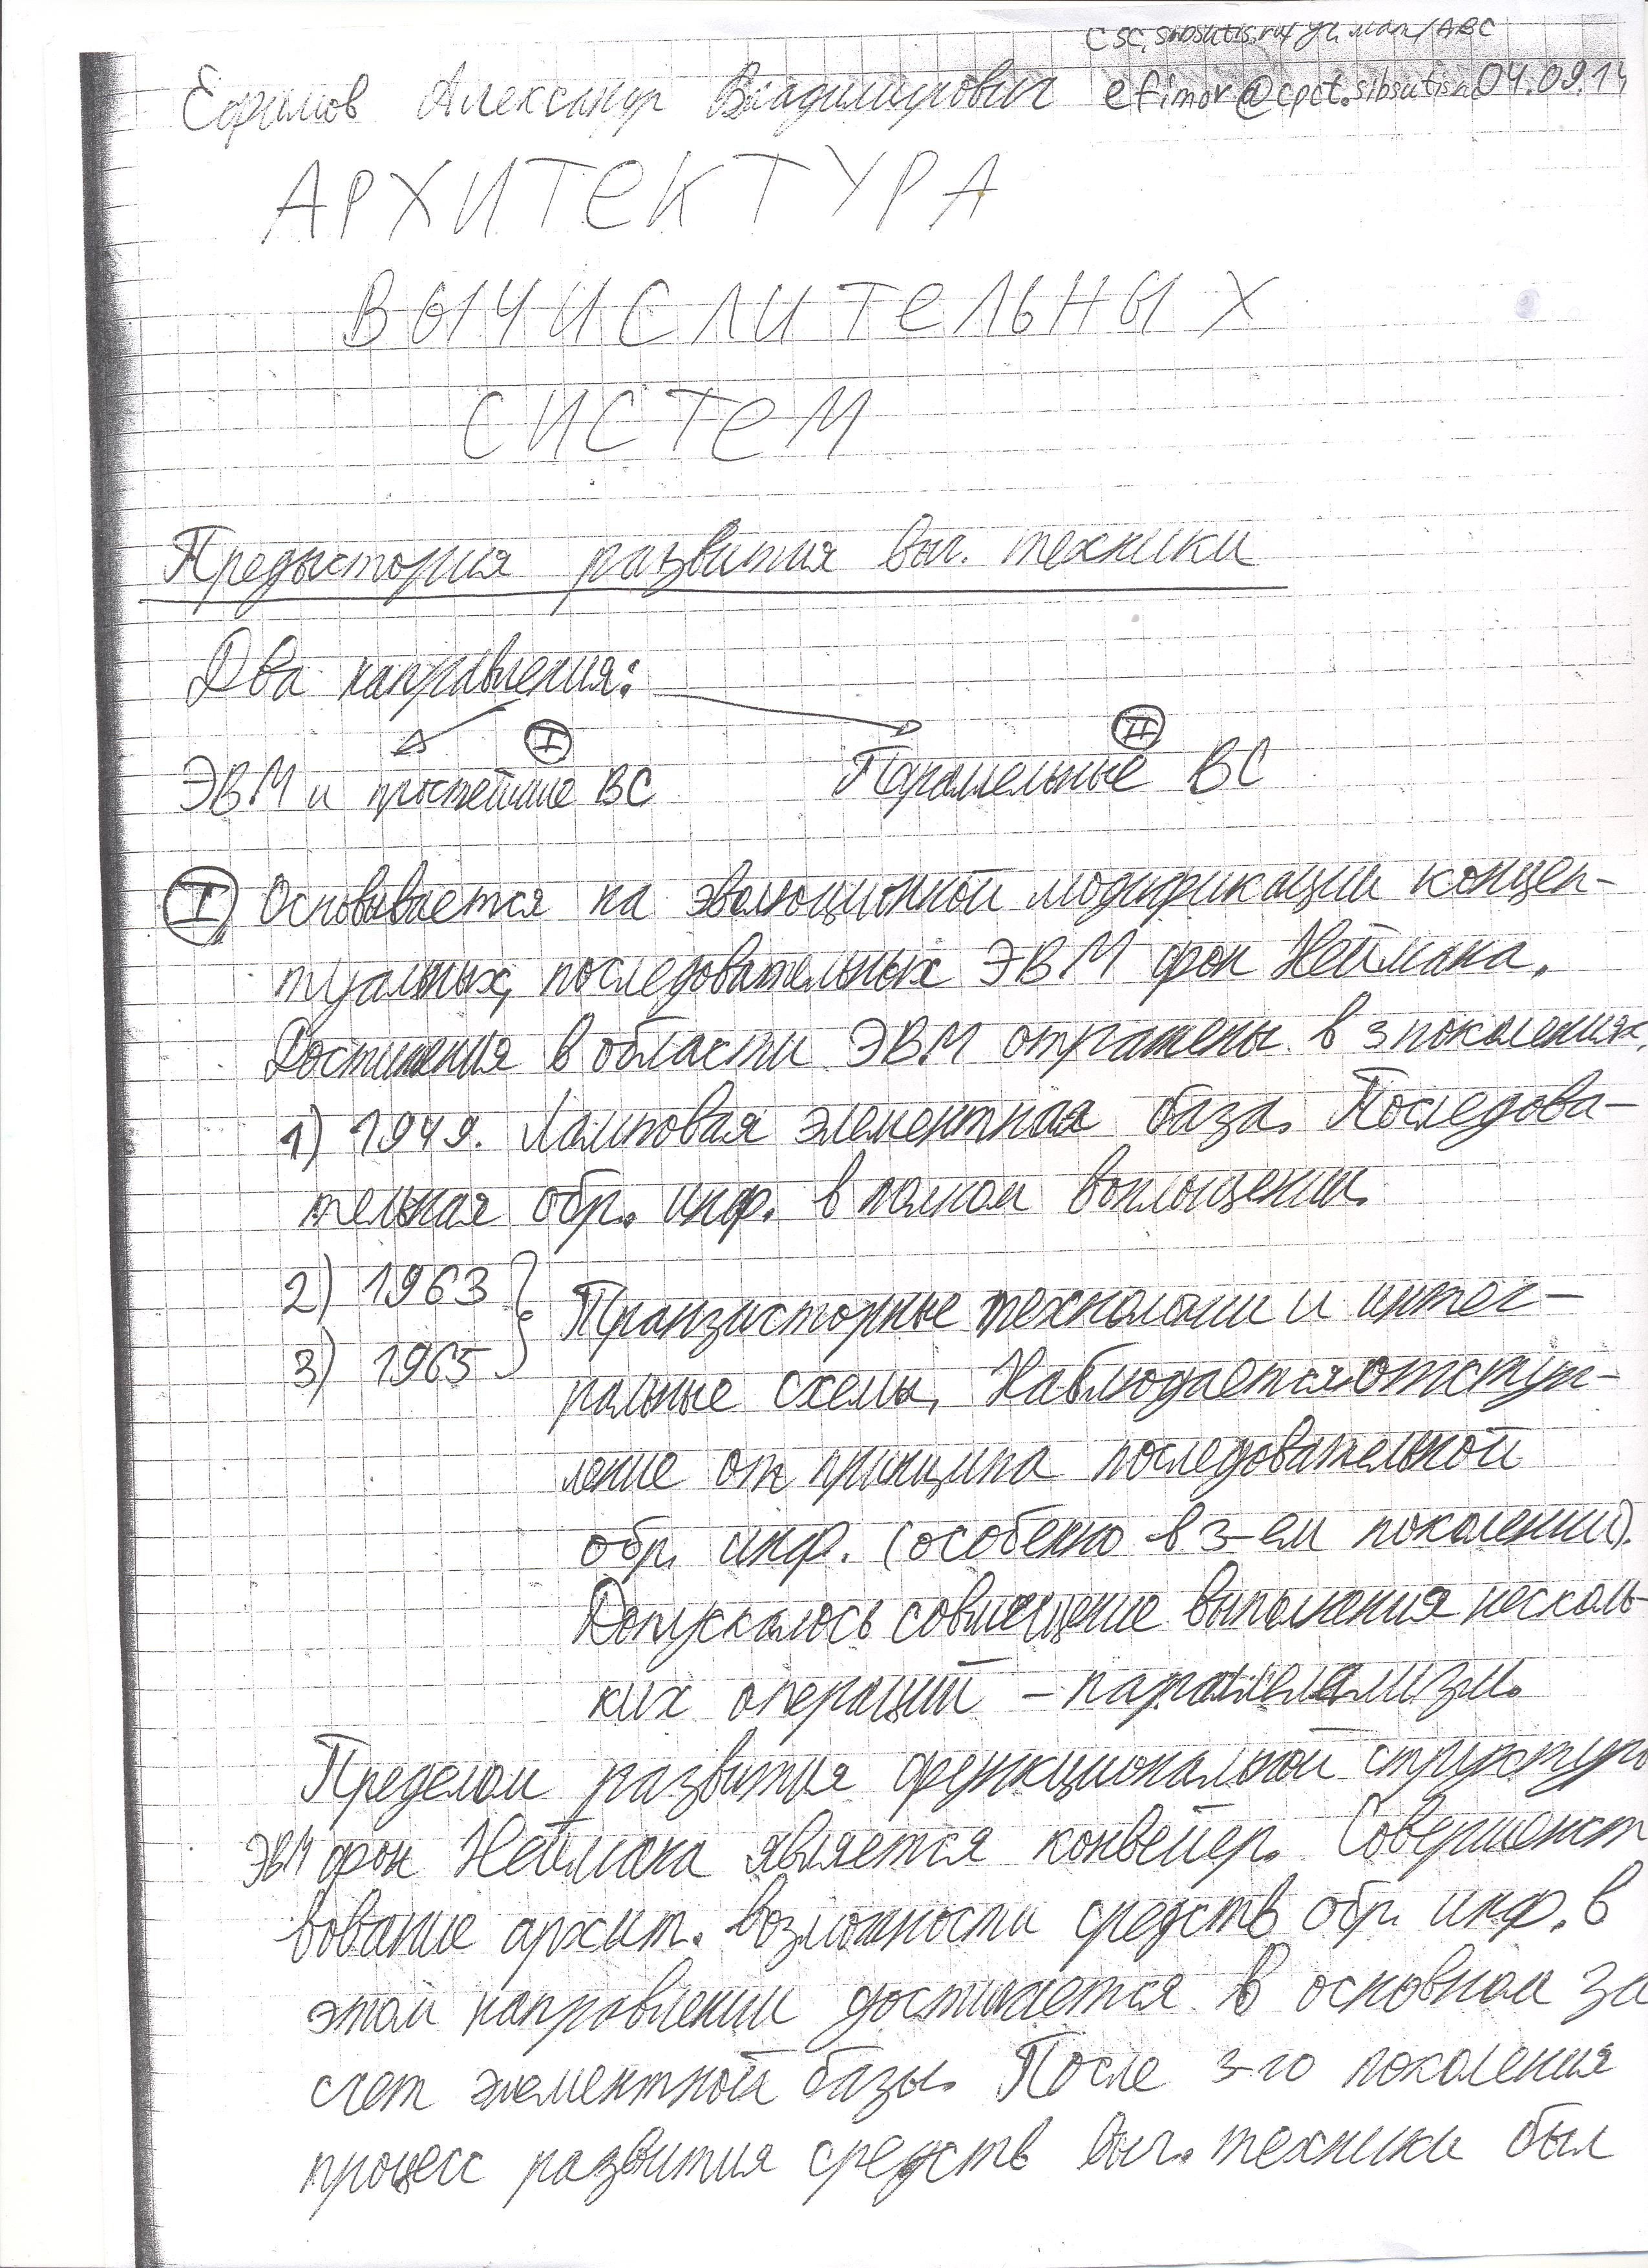 csc.sibsutis.ru/уч.мат/АВС
Ефимов Александр Владимирович efimov@cpct.sibsutis.ru 04.09.14
АРХИТЕКТУРА
ВЫЧИСЛИТЕЛЬНЫХ
СИСТЕМ
Предыстория развития выч. техники
Два направления:
I II
ЭВМ и простейшие ВС Параллельные ВС
I Основывается на эволюционной модификации концеп-
туальных, последовательных ЭВМ фон Неймана.
Достижения в области ЭВМ отражены в 3 поколениях.
1) 1949. Ламповая элементная база. Последова-
тельная обр. инф. в полном воплощении.
2) 1963
3) 1965
Транзисторные технологии и интег-
ральные схемы. Наблюдается отступ-
ление от принципа последовательной
обр. инф. (особенно в 3-ем поколении).
Допускалось совмещение выполнения несколь-
ких операций – параллелизм.
Пределом развития функциональной структуры
ЭВМ фон Неймана является конвейер. Совершенст
вование архит. возможности средств обр. инф. в
этом направлении достигается в основном за
счет элементной базы. После 3-го поколения
процесс развития средств выч. техники был